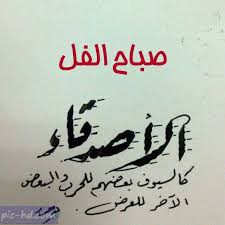 صباح الفل
الأصدقاء
كالسيوف بعضهم للحرب والبعض
الآخر للعرض.
pic-hd.com